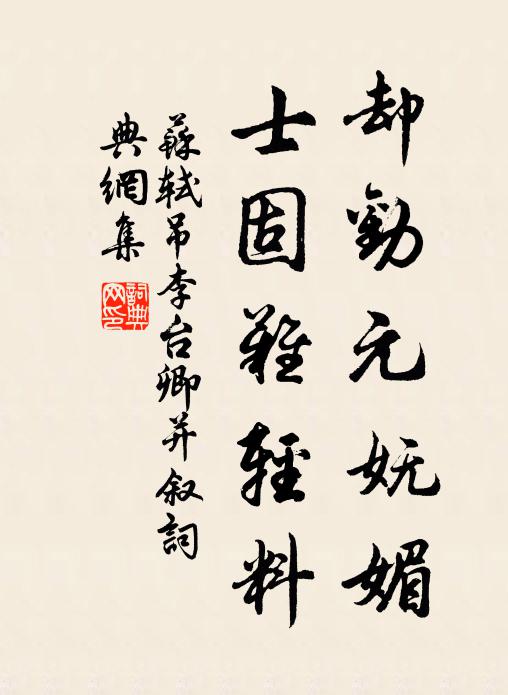 却勸元妩媚
士固難輕料
蘇軾吊李台卿并叙詞
典網集
詞典网印